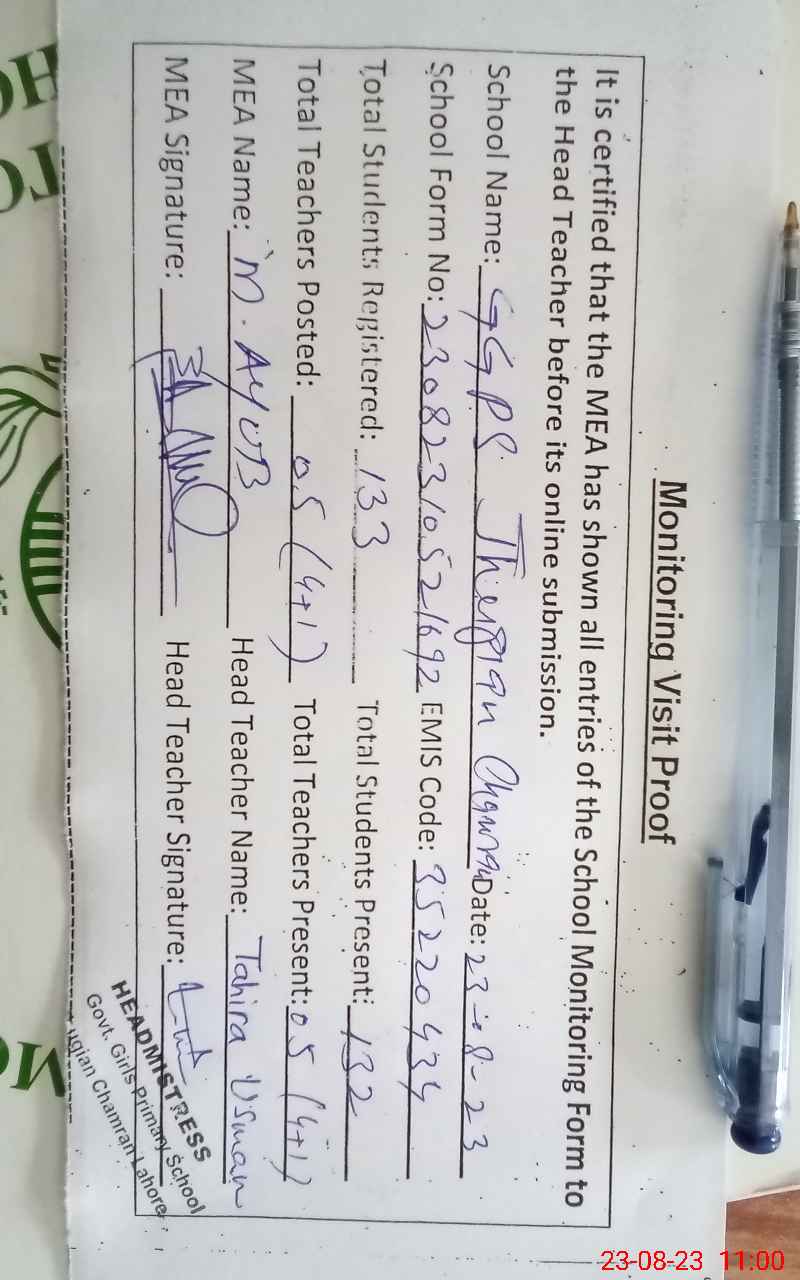 Monitoring Visit Proof
It is certified that the MEA has shown all entries of the School Monitoring Form to
the Head Teacher before its online submission.
School Name: GGPS Chamran Date: 23-08-23
School Form No: 23082310521692 EMIS Code: 35220434
Total Students Registered: 133 Total Students Present: 132
Total Teachers Posted: 05 (4+1) Total Teachers Present: 05 (4+1)
MEA Name: M. AYUB Head Teacher Name: Tahira Usman
MEA Signature: Head Teacher Signature:
HEADMISTRESS
Govt. Girls Primary School
gian Chamran Lahore
23-08-23 11:00